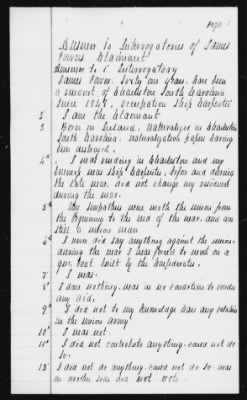 Page 1
Answer to Interrogatories of James
Power Claimant
Answer to 1st Interrogatory
James Power, forty one years, have been
a resident of Charleston South Carolina
since 1848, occupation Ship Carpenter
2 I am the Claimant
3 Born in Ireland. Naturalized in Charleston
South Carolina. naturalization papers having
been destroyed.
4th I was residing in Charleston and my
business was Ship Carpenter, before and during
the late war. did not change my residence
during the war.
5th My sympathies were with the union from
the beginning to the end of the war. and am
still a union man
6th I never did say anything against the union.
during the war I was forced to work on a
gun boat built by the Confederates.
7 I was.
8th I done nothing. was in no condition to render
any aid.
9th I did not to my knowledge have any relatives
in the union army
10th I was not.
11th I did not contribute anything. could not do
so.
12 I did not do anything. could not do so. was
on neither side did not vote.